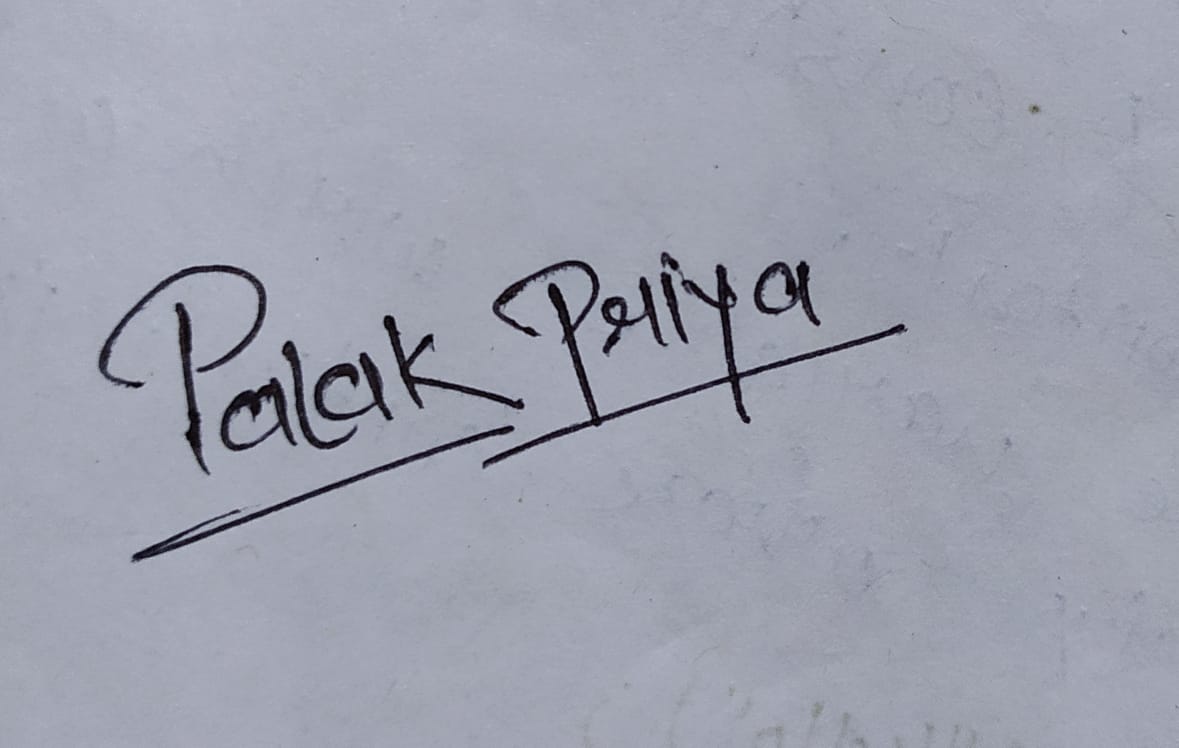 Palak Priya